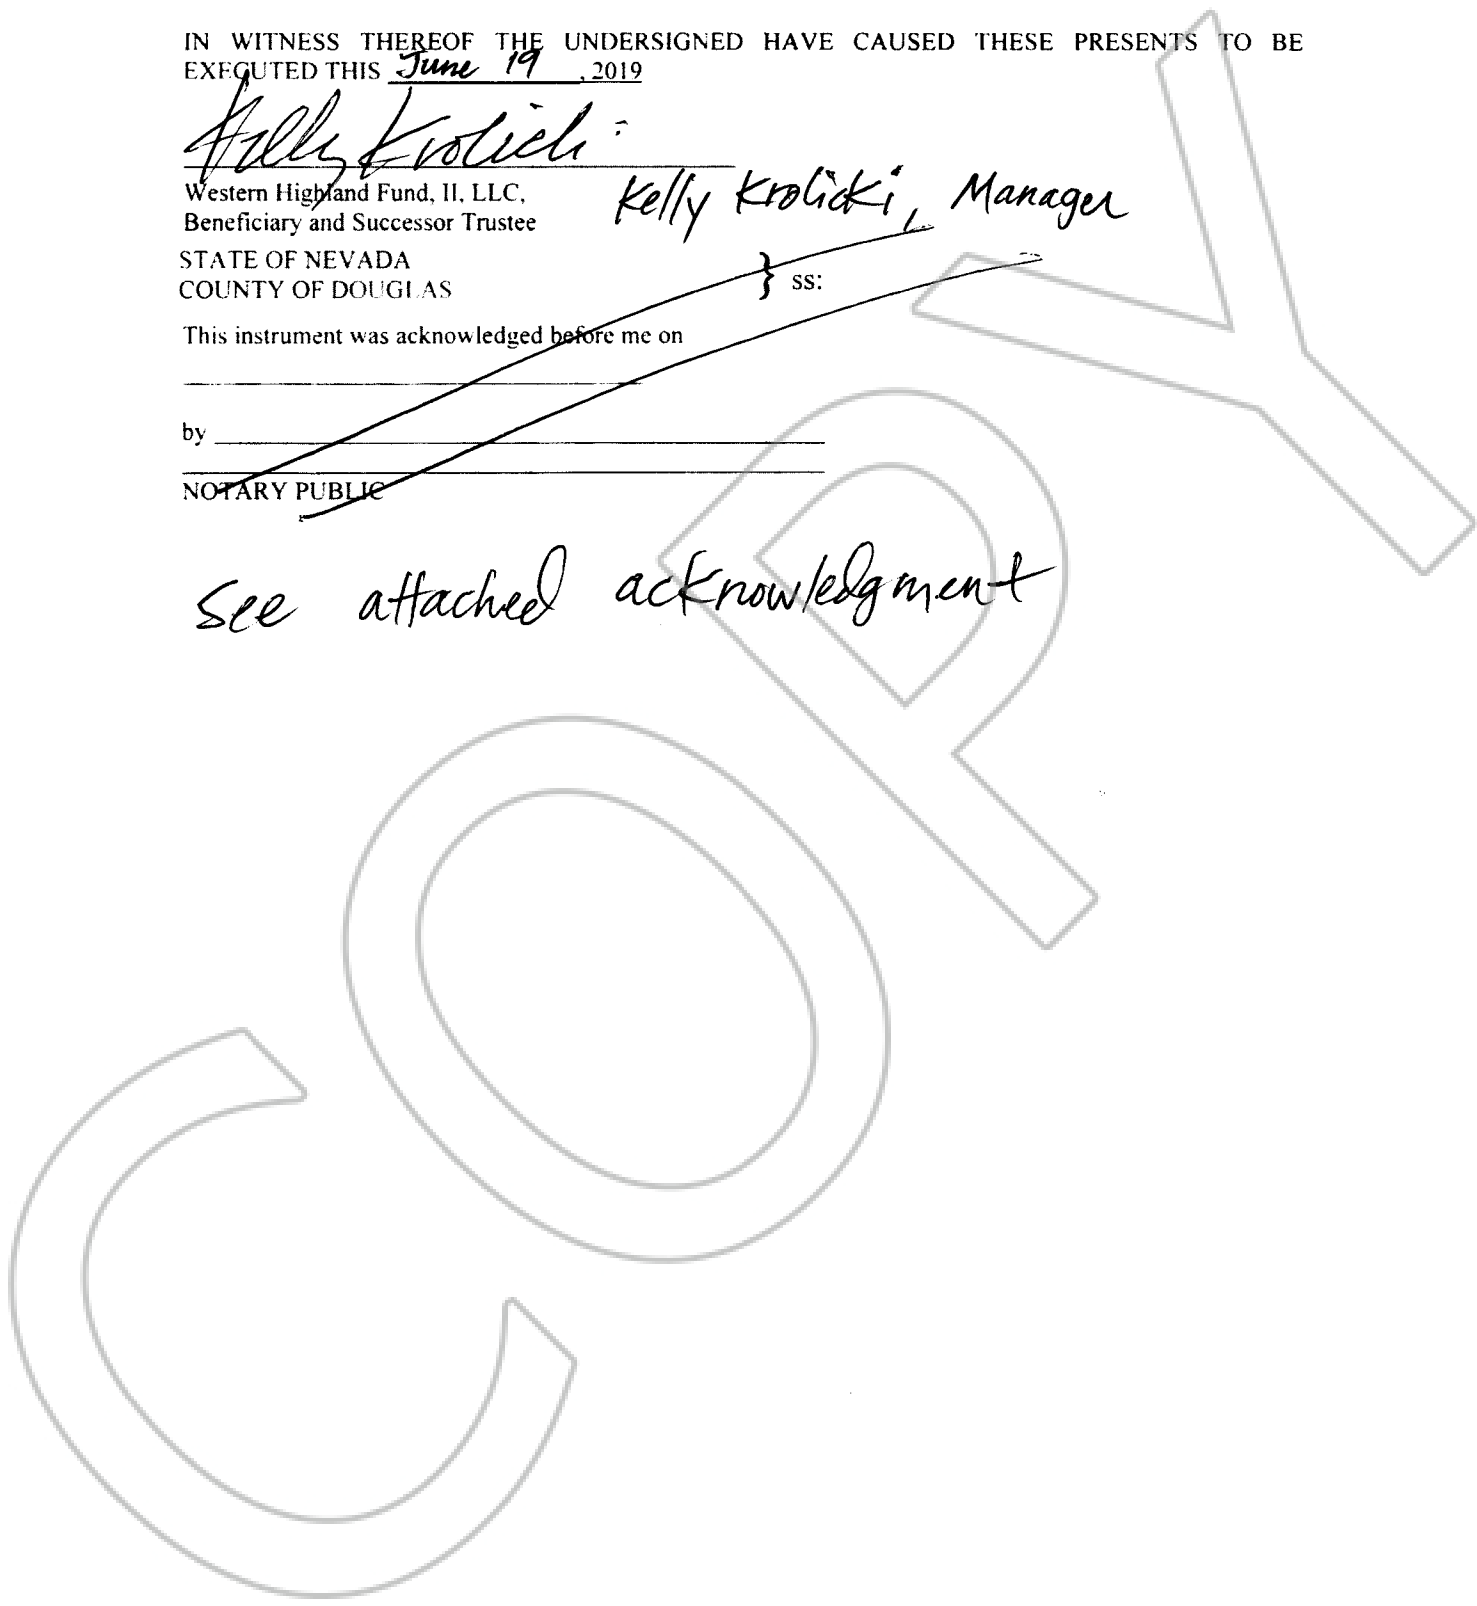 IN WITNESS THEREOF THE UNDERSIGNED HAVE CAUSED THESE PRESENTS TO BE
EXECUTED THIS June 19, 2019
Kelly Krolicki
Western Highland Fund, II, LLC,
Kelly Krolicki, Manager
Beneficiary and Successor Trustee
STATE OF NEVADA
} ss:
COUNTY OF DOUGLAS
This instrument was acknowledged before me on
by
NOTARY PUBLIC
See attached acknowledgment
COPY